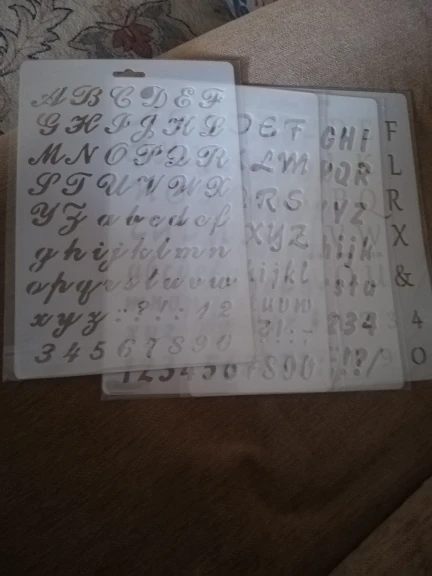 A B C D E F
G H I J K L
M N O P Q R
S T U V W X
Y Z a b c d e f
g h i j k l m n
o p q r s t u v w
x y z : ? ! ; 1 2
3 4 5 6 7 8 9 0
D E F
L M
R S
X Y Z
i j k l
u v w
? ! : ;
1 2 3 4 5 6 7 8 9 0
G H I
P Q R
Y Z
h i j k
s t u
2 3 4
! ? /
F
L
R
X
&
3 4
9 0